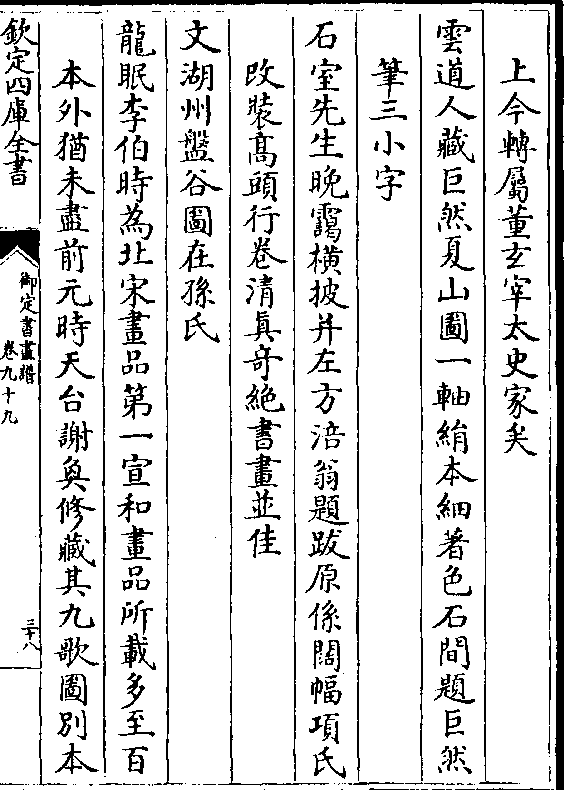 上今轉屬董玄宰太史家矣
雲道人藏巨然夏山圖一軸絹本細著色石間題巨然
筆三小字
石室先生晚靄横披并左方涪翁題跋原係闊幅項氏
改裝高頭行卷清真竒絶書畫並佳
文湖州盤谷圖在孫氏
龍眠李伯時為北宋畫品第一宣和畫品所載多至百
本外猶未盡前元時天台謝奐修藏其九歌圖别本
欽定四庫全書
御定書畫譜
卷九十九
三十八